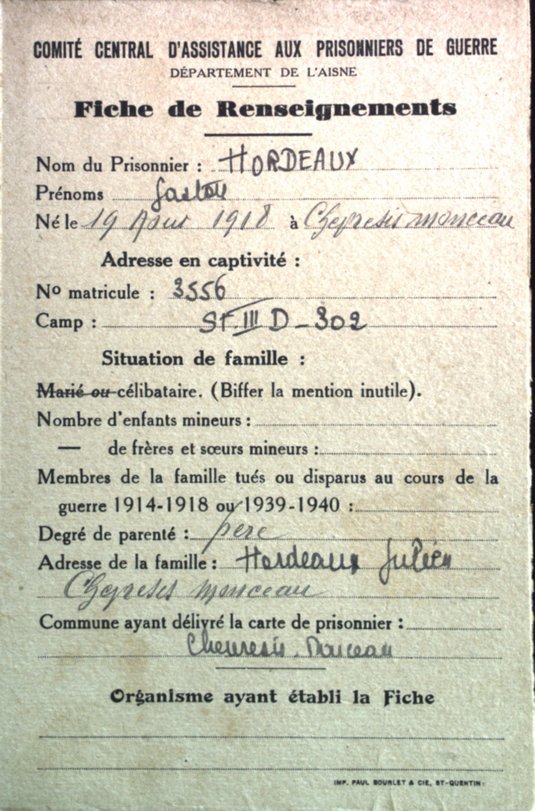 COMITÉ CENTRAL D'ASSISTANCE AUX PRISONNIERS DE GUERRE
DÉPARTEMENT DE L'AISNE
Fiche de Renseignements
Nom du Prisonnier : HORDEAUX
Prénoms Gaston
Né le 19 Aout 1918 à Chevresis monceau
Adresse en captivité :
No matricule : 3556
Camp : ST. III D - 302
Situation de famille :
Marié ou célibataire. (Biffer la mention inutile).
Nombre d'enfants mineurs :
— de frères et sœurs mineurs :
Membres de la famille tués ou disparus au cours de la
guerre 1914-1918 ou 1939-1940 :
Degré de parenté : père
Adresse de la famille : Hordeaux Julien
Chevresis monceau
Commune ayant délivré la carte de prisonnier :
Chevresis-Monceau
Organisme ayant établi la Fiche
IMP. PAUL BOURLET & CIE, ST-QUENTIN